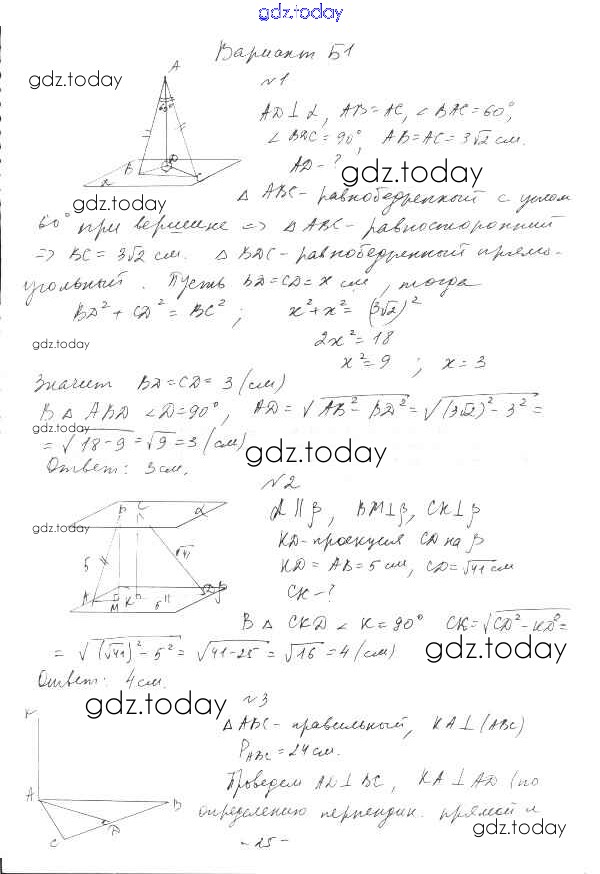 gdz.today
Вариант Б1
gdz.today
№1
A
AD⊥α, AB=AC, ∠BAC=60°,
∠BDC=90°, AB=AC=3√2 см.
AD-?
gdz.today
B
D
C
α
gdz.today
△ ABC - равнобедренный с углом
60° при вершине => △ ABC - равносторонний
=> BC = 3√2 см. △ BDC - равнобедренный прямо-
угольный. Пусть BD=CD=x см, тогда
BD² + CD² = BC²; x²+x² = (3√2)²
gdz.today
2x² = 18
x² = 9 ; x = 3
Значит BD=CD= 3 (см)
В △ ABD ∠D=90°, AD = √AB² - BD² = √(3√2)² - 3² =
gdz.today
= √18-9 = √9 = 3 (см)
gdz.today
Ответ: 3 см.
№2
B C α
α || β, BM⊥β, CK⊥β
gdz.today
KD - проекция CD на β
5
√41
KD = AB = 5 см, CD = √41 см
CK-?
A
M
K
5
D
β
В △ CKD ∠K = 90° CK = √CD² - KD² =
= √(√41)² - 5² = √41-25 = √16 = 4 (см)
gdz.today
Ответ: 4 см.
gdz.today
№3
K
△ ABC - правильный, KA⊥(ABC)
P ABC = 24 см.
Проведем AD⊥BC, KA⊥AD (по
A
B
C
D
определению перпендик. прямой и
gdz.today
- 25 -